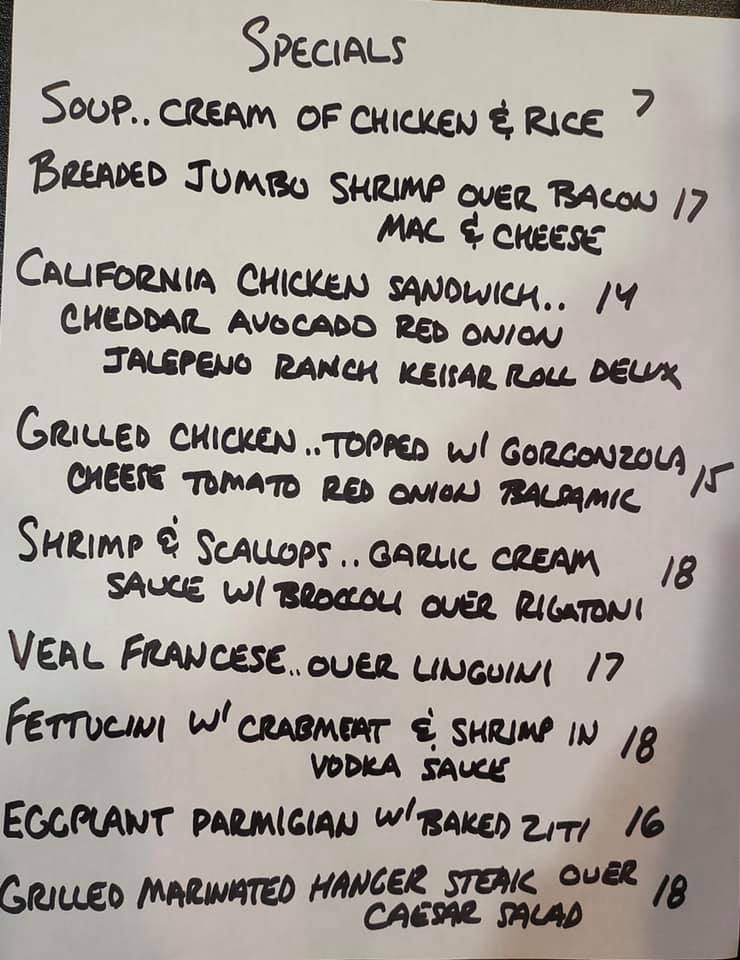 SPECIALS
SOUP.. CREAM OF CHICKEN & RICE 7
BREADED JUMBO SHRIMP OVER BACON 17
MAC & CHEESE
CALIFORNIA CHICKEN SANDWICH.. 14
CHEDDAR AVOCADO RED ONION
JALEPENO RANCH KEISAR ROLL DELUX
GRILLED CHICKEN..TOPPED W/ GORGONZOLA
CHEESE TOMATO RED ONION BALSAMIC 15
SHRIMP & SCALLOPS.. GARLIC CREAM 18
SAUCE W/ BROCCOLI OVER RIGATONI
VEAL FRANCESE..OVER LINGUINI 17
FETTUCINI W/ CRABMEAT & SHRIMP IN 18
VODKA SAUCE
EGGPLANT PARMIGIAN W/ BAKED ZITI 16
GRILLED MARINATED HANGER STEAK OVER 18
CAESAR SALAD